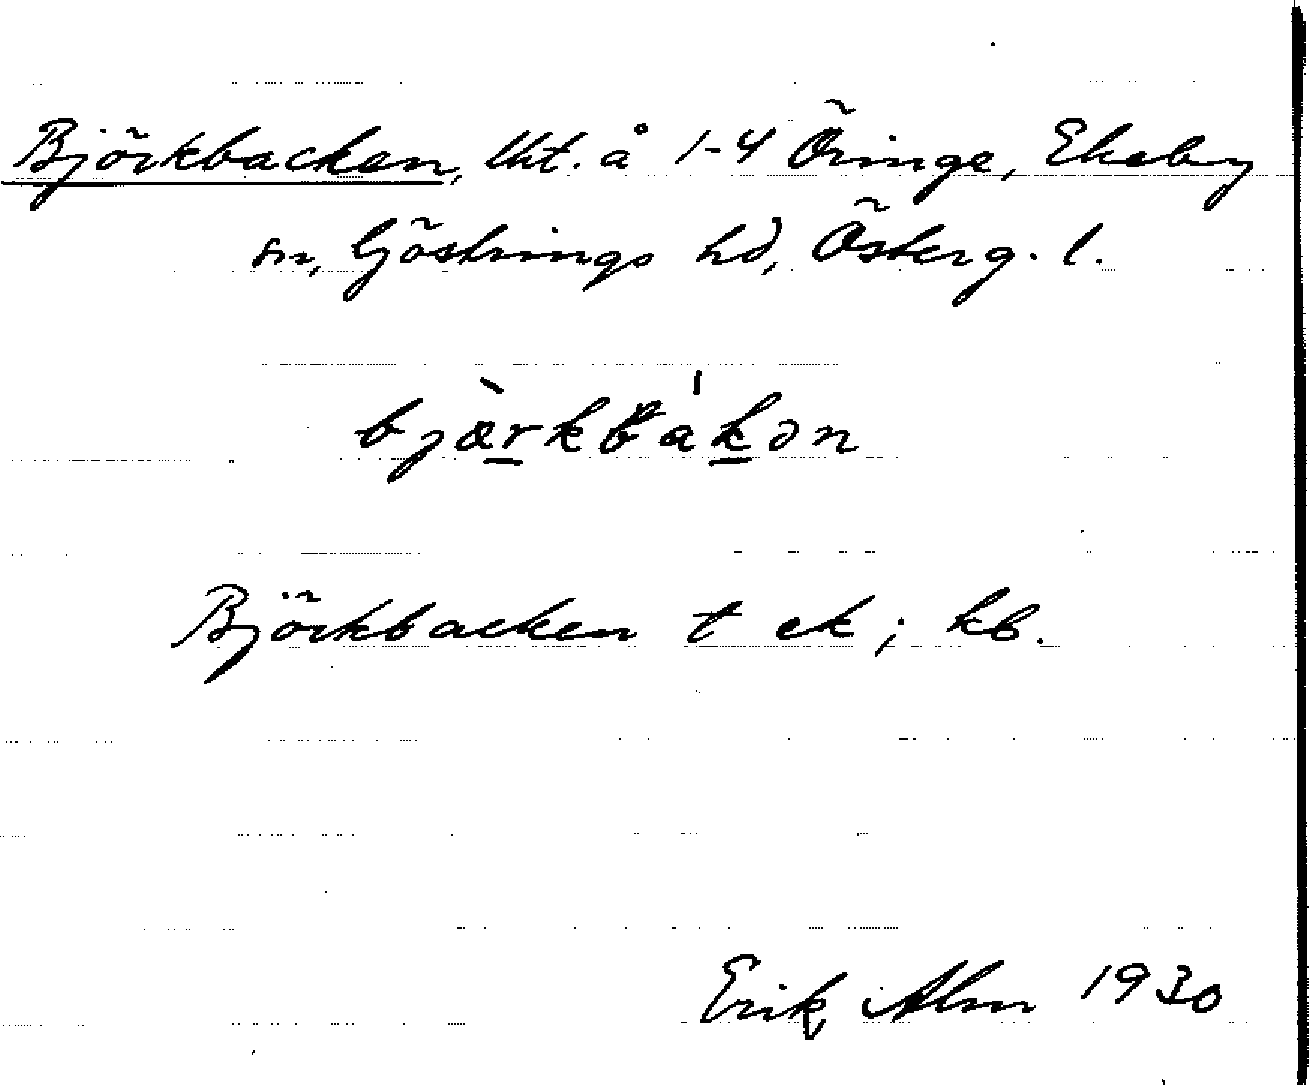 Björkbacken, lht. å 1-4 Öringe, Ekeby
sn, Göstrings hd, Österg. l.
bjæ̀rkbákən
Björkbacken t ek; kb.
Erik Alm 1930